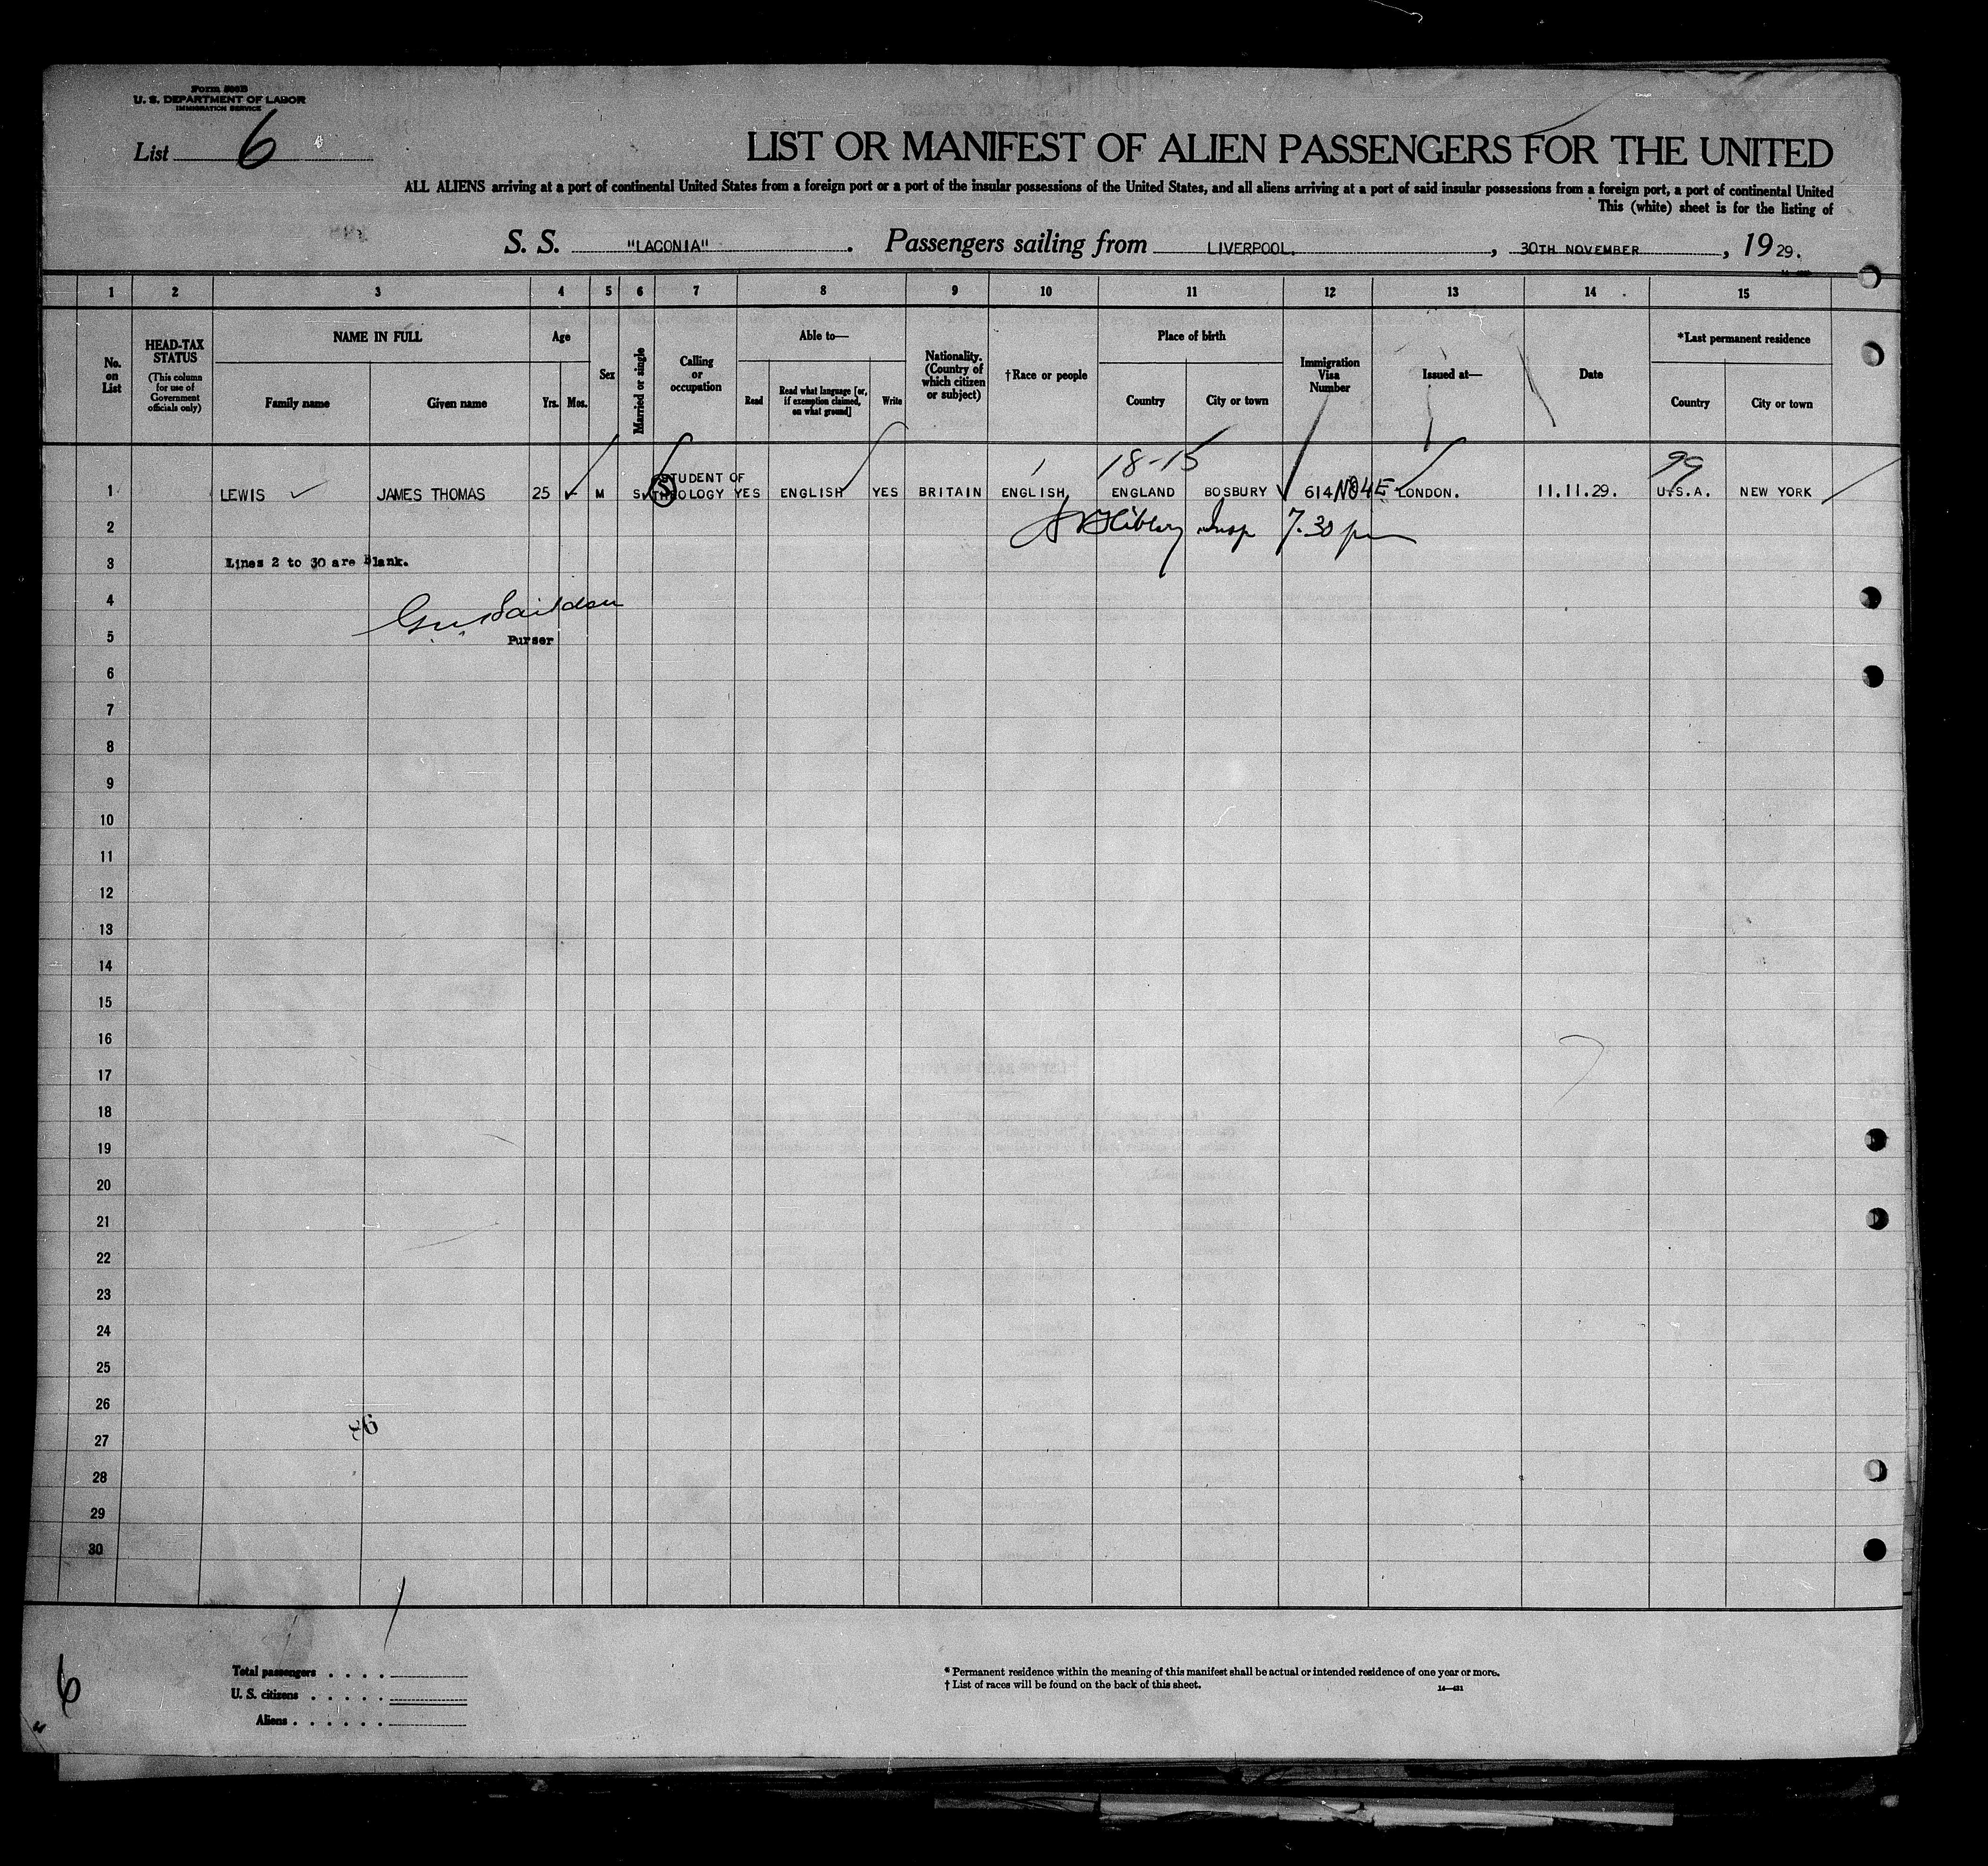 Form 500B
U. S. DEPARTMENT OF LABOR
IMMIGRATION SERVICE
List 6
LIST OR MANIFEST OF ALIEN PASSENGERS FOR THE UNITED
ALL ALIENS arriving at a port of continental United States from a foreign port or a port of the insular possessions of the United States, and all aliens arriving at a port of said insular possessions from a foreign port, a port of continental United
This (white) sheet is for the listing of
S. S. "LACONIA". Passengers sailing from LIVERPOOL., 30TH NOVEMBER, 1929.
1 2 3 4 5 6 7 8 9 10 11 12 13 14 15
No. on List
HEAD-TAX STATUS
(This column for use of Government officials only)
NAME IN FULL
Family name Given name
Age
Yrs. Mos.
Sex
Married or single
Calling or occupation
Able to—
Read Read what language [or, if exemption claimed, on what ground] Write
Nationality. (Country of which citizen or subject)
†Race or people
Place of birth
Country City or town
Immigration Visa Number
Issued at—
Date
*Last permanent residence
Country City or town
18-15 99
1 LEWIS JAMES THOMAS 25 - M S STUDENT OF THEOLOGY YES ENGLISH YES BRITAIN ENGLISH ENGLAND BOSBURY 614 NO4E LONDON. 11.11.29. U.S.A. NEW YORK
2 Insp 7.30 pm
3 Lines 2 to 30 are Blank.
4
5 Purser
6
7
8
9
10
11
12
13
14
15
16
17
18
19
20
21
22
23
24
25
26
27
28
29
30
6
Total passengers . . . .
U. S. citizens . . . . .
Aliens . . . . . .
* Permanent residence within the meaning of this manifest shall be actual or intended residence of one year or more.
† List of races will be found on the back of this sheet.